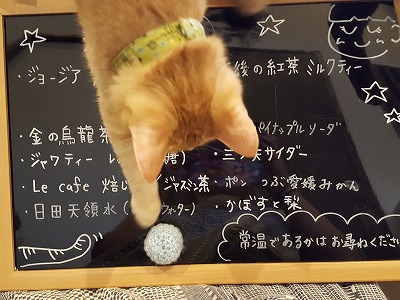 ・ジョージア
後の紅茶 ミルクティー
パイナップルソーダ
・金の烏龍茶
・ジャワティー
糖)
・三ツ矢サイダー
・Le cafe 焙じ
ジャスミン茶
・ポン つぶ愛媛みかん
・日田天領水(
ウォーター)
・かぼすと梨
常温であるかはお尋ねください